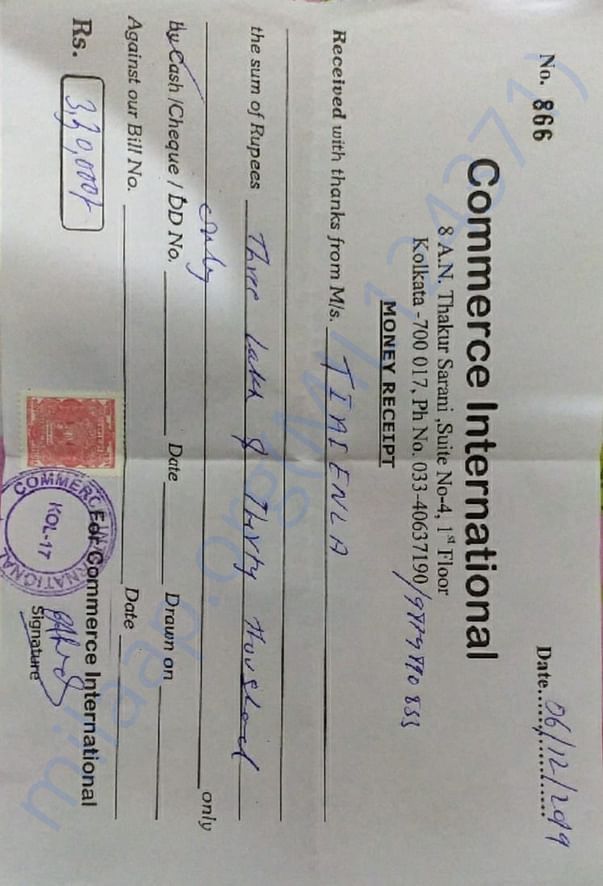 No. 866 Date....06/12/2019
Commerce International
8 A.N. Thakur Sarani ,Suite No-4, 1st Floor
Kolkata -700 017, Ph No. 033-40637190/
MONEY RECEIPT
Received with thanks from M/s.
the sum of Rupees Three Lakh & Thirty thousand
only only
By Cash /Cheque / DD No. Date Drawn on
Against our Bill No. Date
Rs. 3,30,000/-
For Commerce International
Signature
COMMERCE INTERNATIONAL
KOL-17
milaap.org